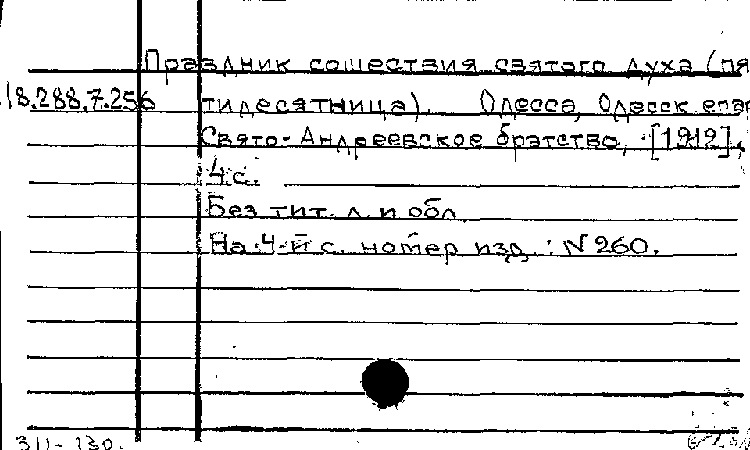 Праздник сошествия святого духа (пя
18.288.7.256 тидесятница). Одесса, Одесск епар
Свято-Андреевское братство, [1912].
4 с.
Без тит. л. и обл.
На 4-й с. номер изд.: N 260.
311-130.